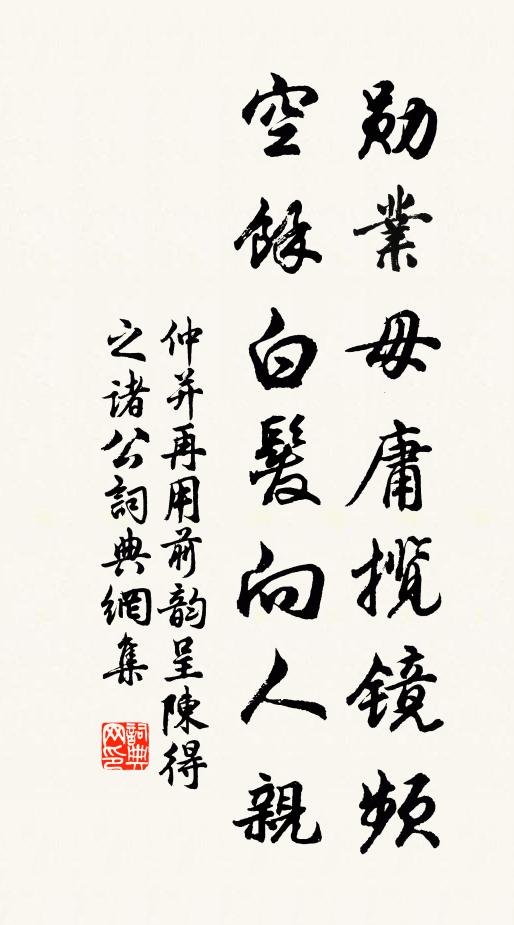 勋業毋庸攬镜频
空餘白髮向人親
仲并再用前韵呈陳得
之诸公詞典網集
詞典
网印